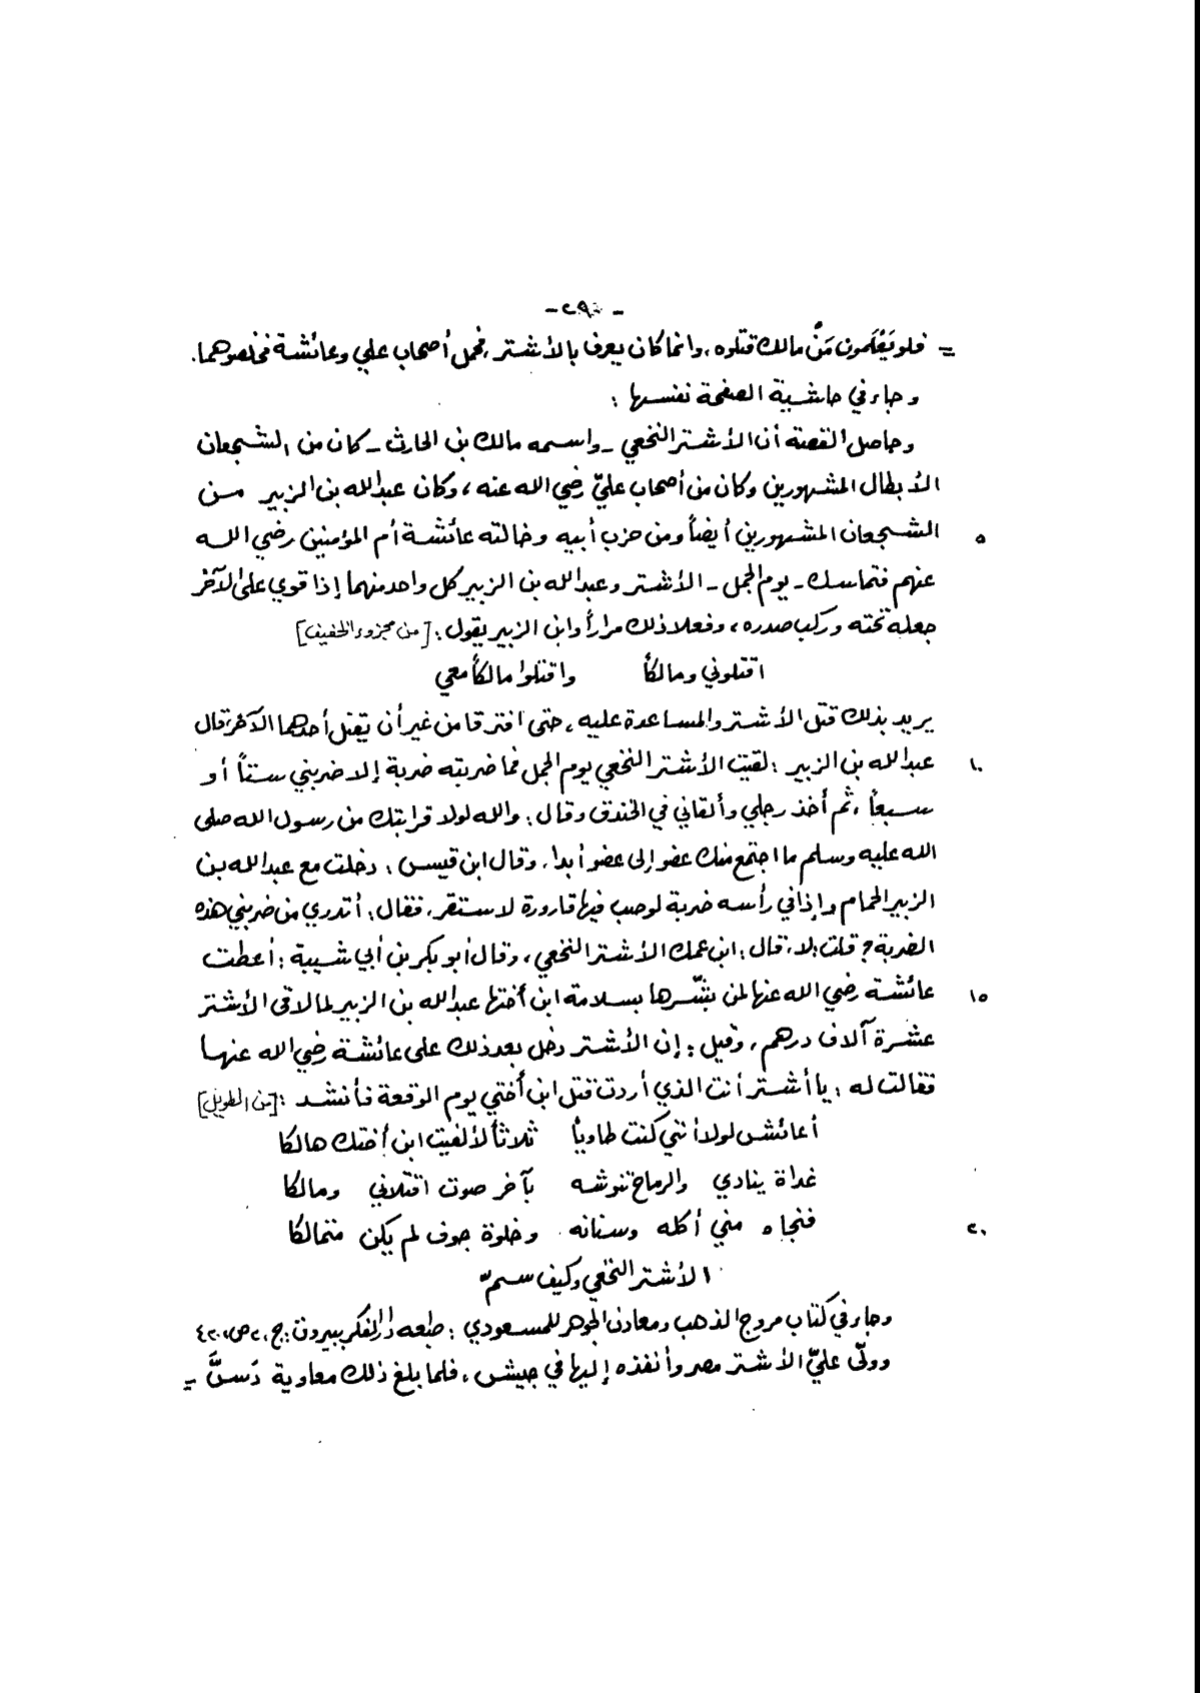 -٢٩٠-
= فلو يَعْلَمون مَنْ مالك قتلوه، وانما كان يعرف بالأشتر، فحمل أصحاب علي وعائشة فخلصوهما.
وجاء في حاشية الصفحة نفسها :
وحاصل القصة أن الأشتر النخعي - واسمه مالك بن الحارث - كان من الشجعان
الأبطال المشهورين وكان من أصحاب عليّ رضي الله عنه، وكان عبد الله بن الزبير من
الشجعان المشهورين أيضاً ومن حزب أبيه وخالته عائشة أم المؤمنين رضي الله ٥
عنهم فتماسك - يوم الجمل - الأشتر وعبد الله بن الزبير كل واحد منهما إذا قوي على الآخر
جعله تحته وركب صدره، وفعلا ذلك مراراً وابن الزبير يقول : [من مجزوء الخفيف]
اقتلوني ومالكاً واقتلوا مالكاً معي
يريد بذلك قتل الأشتر والمساعدة عليه، حتى افترقا من غير أن يقتل أحدهما الآخر، قال
عبد الله بن الزبير : لقيت الأشتر النخعي يوم الجمل فما ضربته ضربة إلا ضربني ستاً أو ١٠
سبعاً، ثم أخذ رجلي وألقاني في الخندق وقال : والله لولا قرابتك من رسول الله صلى
الله عليه وسلم ما اجتمع منك عضو إلى عضو أبدا. وقال ابن قيس : دخلت مع عبد الله بن
الزبير الحمام وإذا في رأسه ضربة لو صب فيها قارورة لاستقر. فقال : أتدري من ضربني هذه
الضربة؟ قلت : لا، قال : ابن عمك الأشتر النخعي، وقال أبو بكر بن أبي شيبة : أعطت
عائشة رضي الله عنها لمن بشّرها بسلامة ابن أختها عبد الله بن الزبير لما لاقى الأشتر ١٥
عشرة آلاف درهم، وقيل : إن الأشتر دخل بعد ذلك على عائشة رضي الله عنها
فقالت له : يا أشتر أنت الذي أردت قتل ابن أختي يوم الوقعة فأنشد : [من الطويل]
أعائش لولا أنني كنت طاوياً ثلاثاً لألفيت ابن أختك هالكا
غداة ينادي والرماح تنوشه بآخر صوت اقتلاني ومالكا
فنجاه مني أكله وسنانه وخلوة جوف لم يكن متمالكا ٢٠
الأشتر النخعي وكيف سمّ
وجاء في كتاب مروج الذهب ومعادن الجوهر للمسعودي : طبعه دار الفكر ببيروت : ج، ٢ ص، ٤٢٠
وولّى عليّ الأشتر مصر وأنفذه إليها في جيش، فلما بلغ ذلك معاوية دَسَّ =